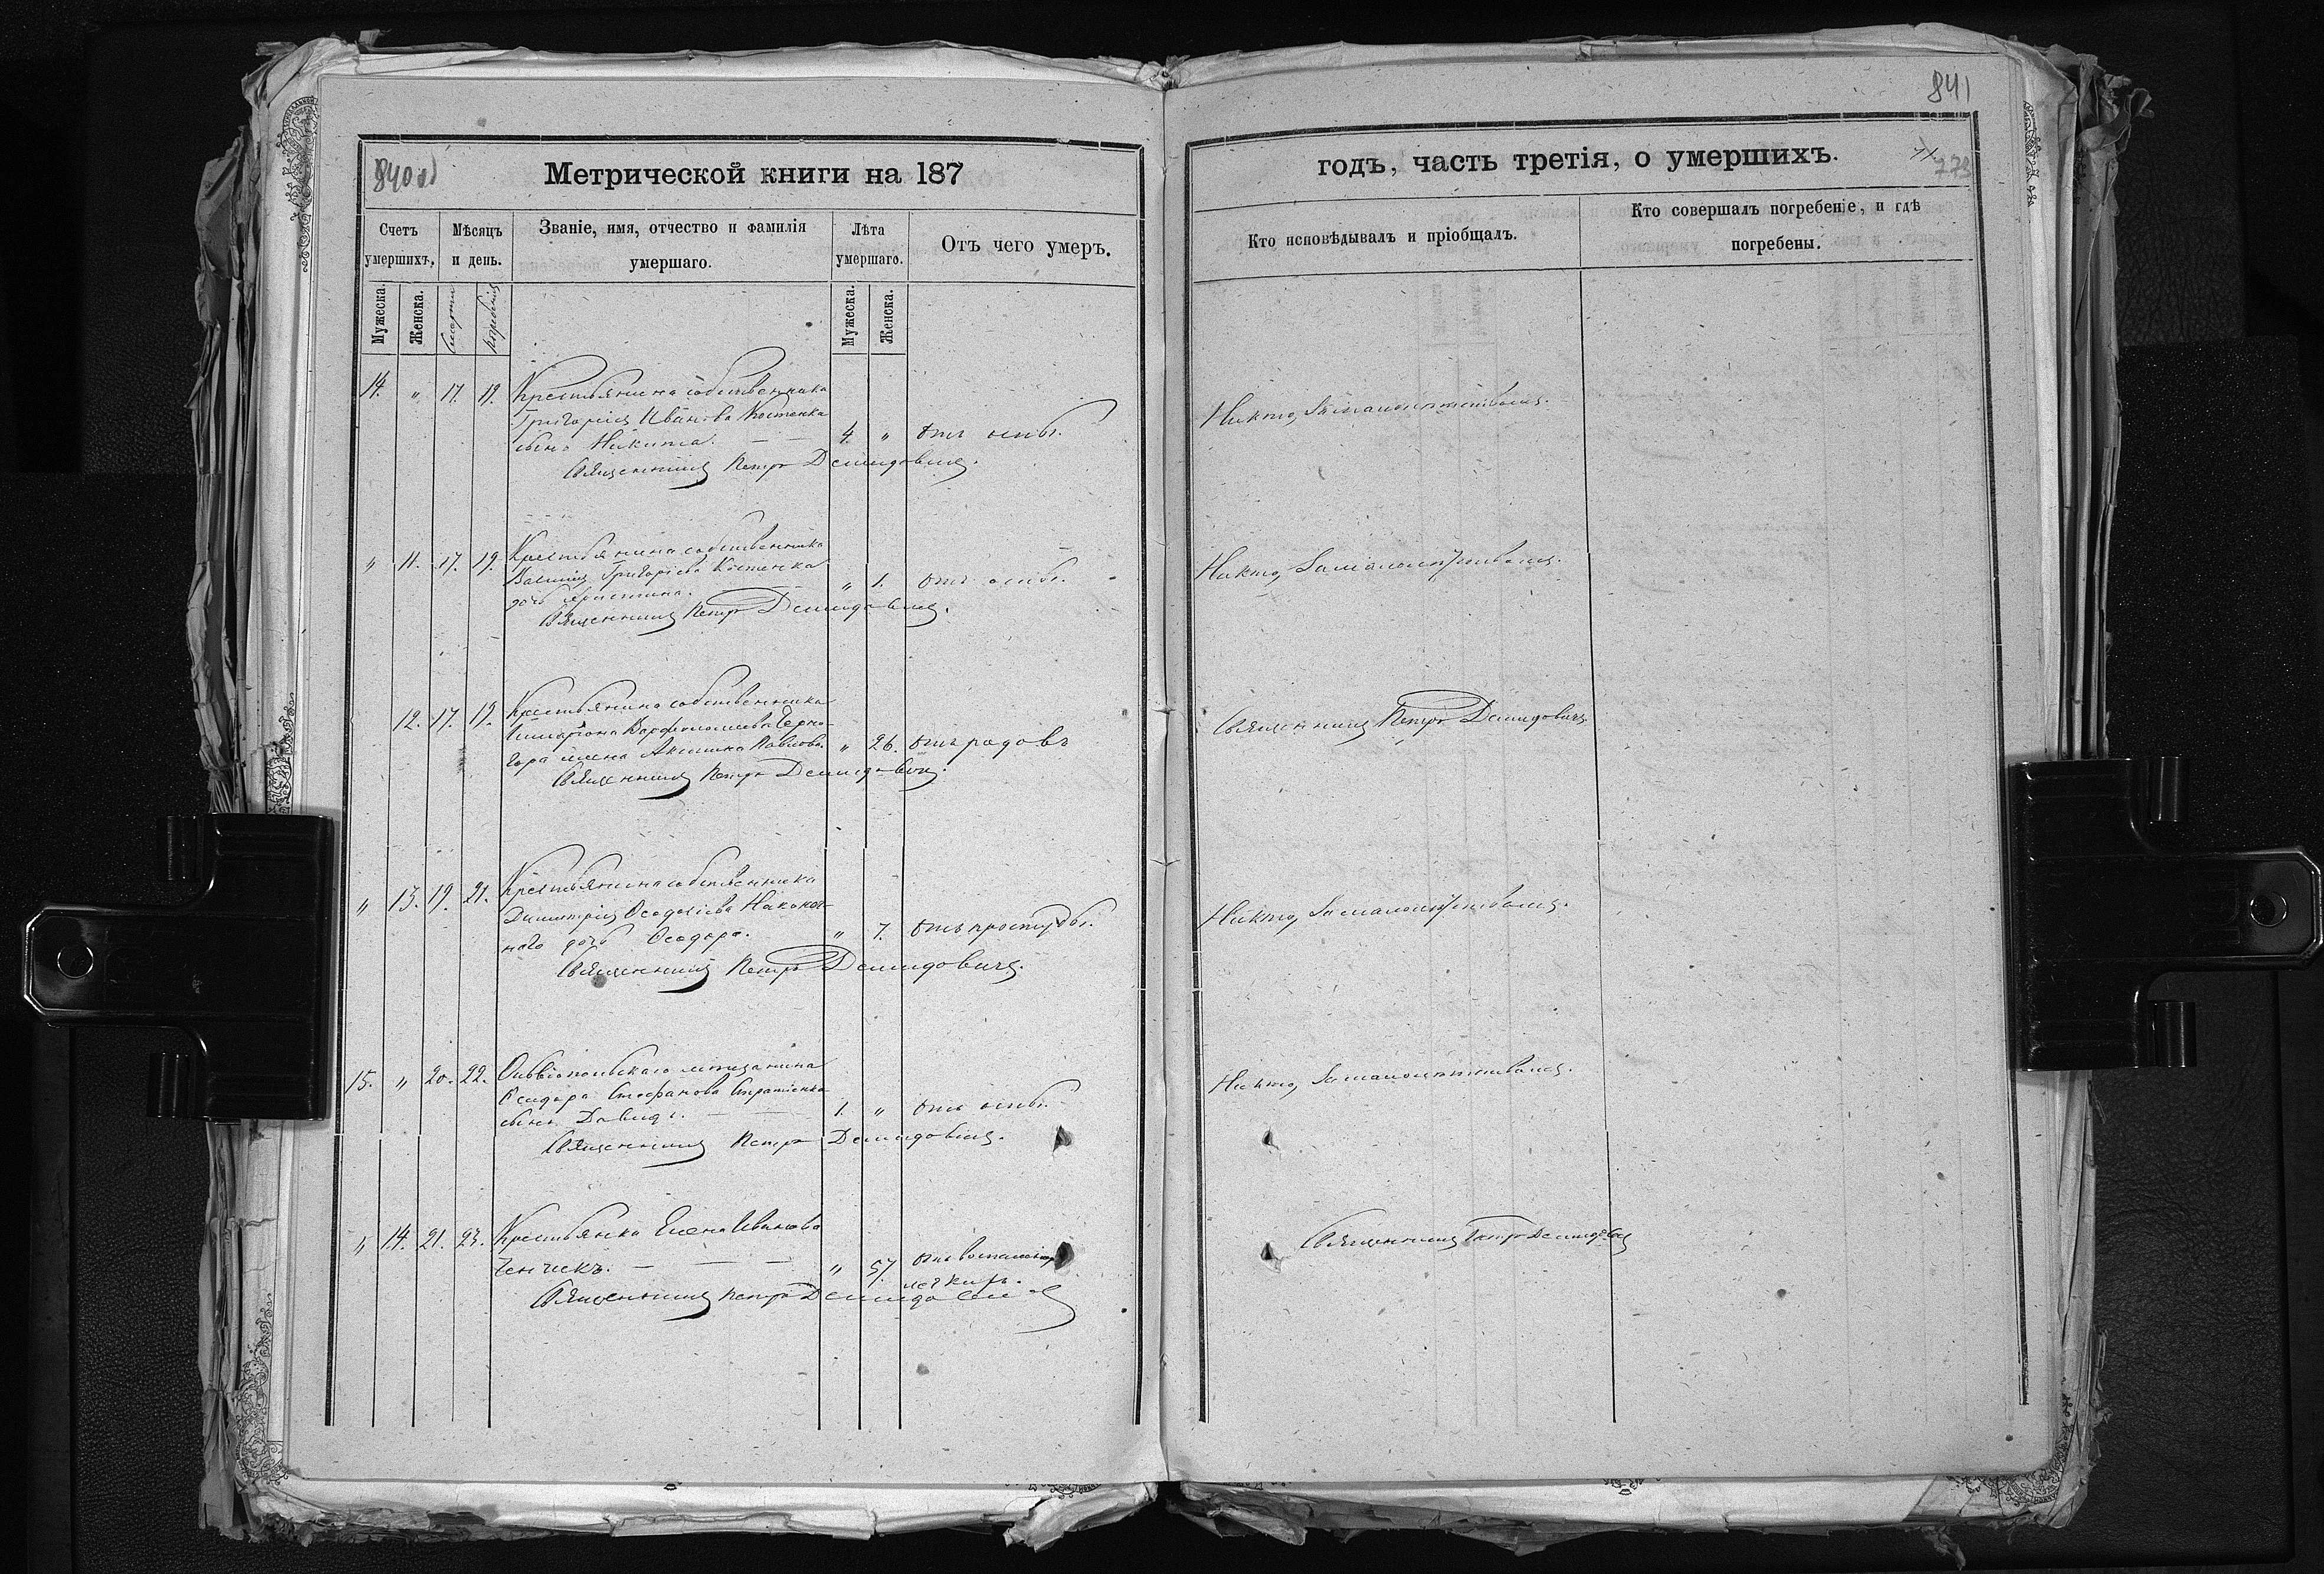 841
840 об
Метрической книги на 187
годъ, часть третія, о умершихъ.
773
Счетъ умершихъ.
Мѣсяцъ и день.
Званіе, имя, отчество и фамилія умершаго.
Лѣта умершаго.
Отъ чего умеръ.
Кто исповѣдывалъ и пріобщалъ.
Кто совершалъ погребеніе, и гдѣ погребены.
Мужеска.
Женска.
смерти
погребенія
Мужеска.
Женска.
14. " 17. 19. Крестьянина собственника
Григорія Иванова Костенка
сынъ Никита. — — 4. " отъ оспы.
Никто, за малолѣтствомъ.
Священникъ Петръ Демидовичъ.
" 11. 17. 19. Крестьянина собственника
Василія Григоріева Костенка
дочь Христина. — " 1. отъ оспы.
Никто, за малолѣтствомъ.
Священникъ Петръ Демидовичъ.
12. 17. 19. Крестьянина собственника
Илларіона Варфоломеева Черно-
гора жена Акилина Павлова. " 26. отъ родовъ
Священникъ Петръ Демидовичъ
Священникъ Петръ Демидовичъ.
" 13. 19. 21. Крестьянина собственника
Димитрія Феодосіева Наконеч-
наго дочь Феодора. " 7. отъ простуды.
Никто, за малолѣтствомъ.
Священникъ Петръ Демидовичъ.
15. " 20. 22. Ольвіопольскаго мѣщанина
Исидора Стефанова Стратіенка
сынъ Давидъ. — — 1. " отъ оспы.
Никто, за малолѣтствомъ.
Священникъ Петръ Демидовичъ.
" 14. 21. 23. Крестьянка Елена Иванова
— — — " 57. отъ воспаленія
легкихъ.
Священникъ Петръ Демидовичъ
Священникъ Петръ Демидовичъ